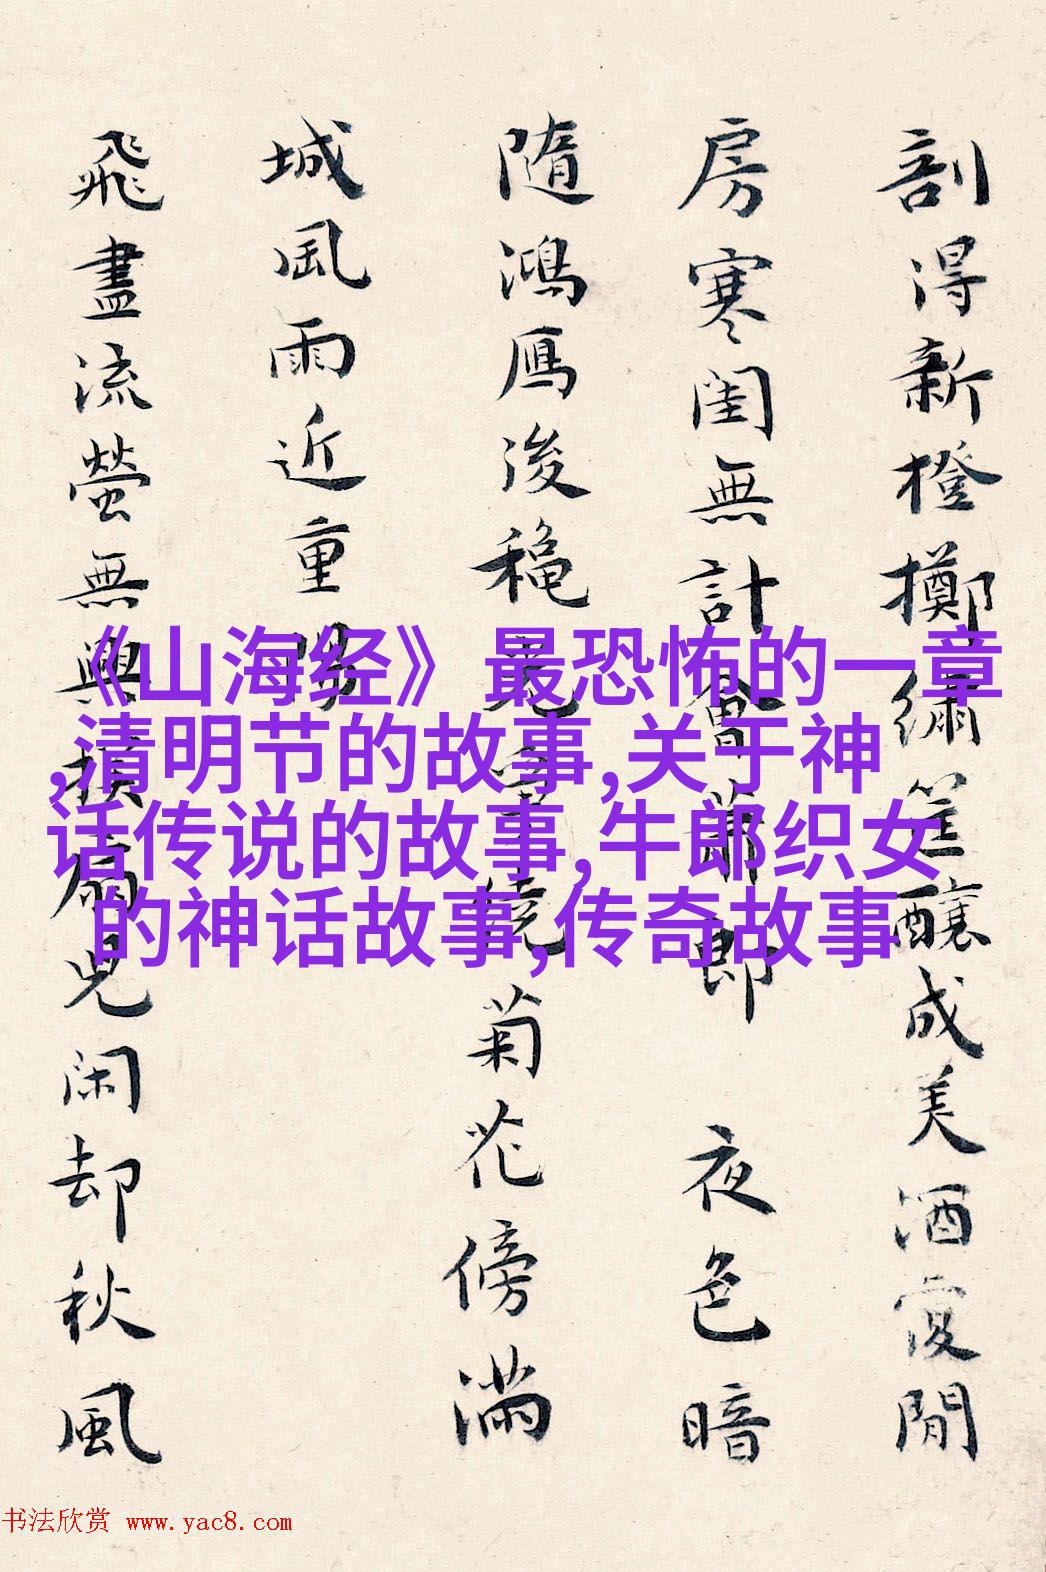 剖得新橙擲繡筐釀成美酒復閒
房寒閨無計會蕭郎 夜色暗
隨鴻雁後穐光穿繞菊花傍滿
城風雨近重陽
飛盡流螢無興撲扇兒闲却秋風
《山海经》最恐怖的一章
,清明节的故事,关于神
话传说的故事,牛郎织女
的神话故事,传奇故事
书法欣赏 www.yac8.com